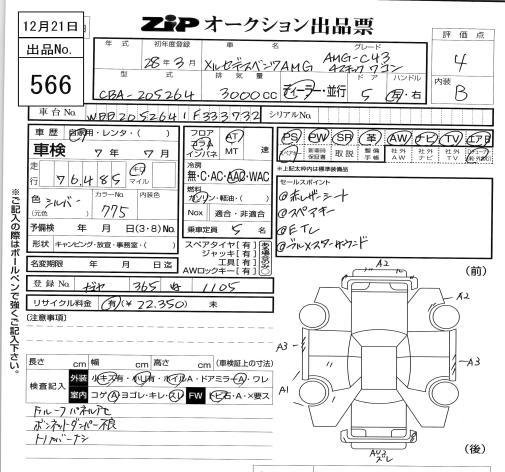 12月21日
出品No.
566
ZIP オークション出品票
年式 初年度登録 車名 グレード
28年3月 メルセデスベンツAMG AMG-C43 4マチックワゴン
型式 排気量 ドア ハンドル
CBA-205264 3000cc ディーラー・並行 5 左・右
評価点
4
内装
B
車台No. WDD2052641F333732 シリアルNo.
車歴 自家用・レンタ・( )
車検 7年 7月
走行 76,485 キロ マイル
色 シルバー (元色)
カラーNo. 775
内装色
予備検 年 月 日(3・8)No.
形状 キャンピング・放宣・事務室・( )
名変期限 年 月 日迄
フロア コラム インパネ AT MT 速
冷房
無・C・AC・AAC・WAC
燃料
ガソリン・軽油・( )
Nox 適合・非適合
乗車定員 5 名
スペアタイヤ【有】
ジャッキ【有】
工具【有】
AWロックキー【有】
PS PW SR 革 AW ナビ TV エアB
新車時保証書 取説 整備手帳 社外AW 社外ナビ 社外TV
※上記太枠は標準装備品
セールスポイント
@赤レザーシート
@スペアキー
@ETC
@ブルメスターサウンド
登録No. 365 1105
リサイクル料金 有(¥22,350) 未
[注意事項]
長さ cm 幅 cm 高さ cm (車検証上の寸法)
検査記入 外装 小キズ有・小凹有・ホイルA・ドアミラーA・ワレ
室内 コゲA・ヨゴレ・キレ・スレ FW トビ石・A・×要ス
ドルーフパネル凹
ボンネットダンパー不良
トノカバーナシ
※ご記入の際はボールペンで強くご記入下さい。
(前)
A2
A2
A3
A3
A1
A2
(後)